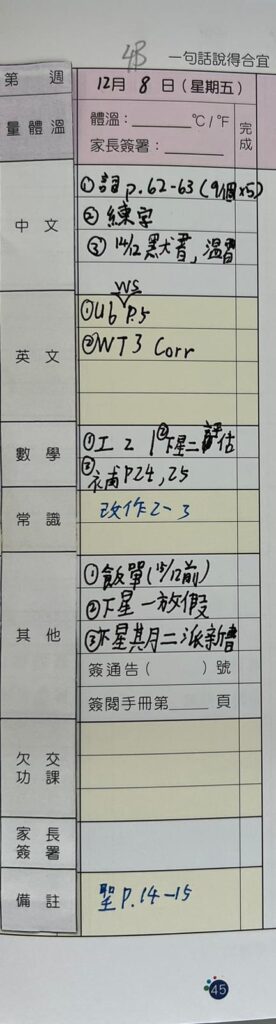 4B
一句話說得合宜
第 週
12月 8 日（星期五）
量體溫
體溫：______℃/℉
家長簽署：______
完成
中文
①詞 p.62-63 (9個×5)
②練字
③14/12 默書, 溫習
英文
WS
①U6 P.5
②WT3 Corr
數學
①工 2 | ②下星二評估
③補 P24, 25
常識
改作2-3
其他
①飯單(15/12前)
②下星一放假
③下星其月二派新書
簽通告（ ）號
簽閱手冊第____頁
欠交功課
家長簽署
備註
聖 P.14-15
45